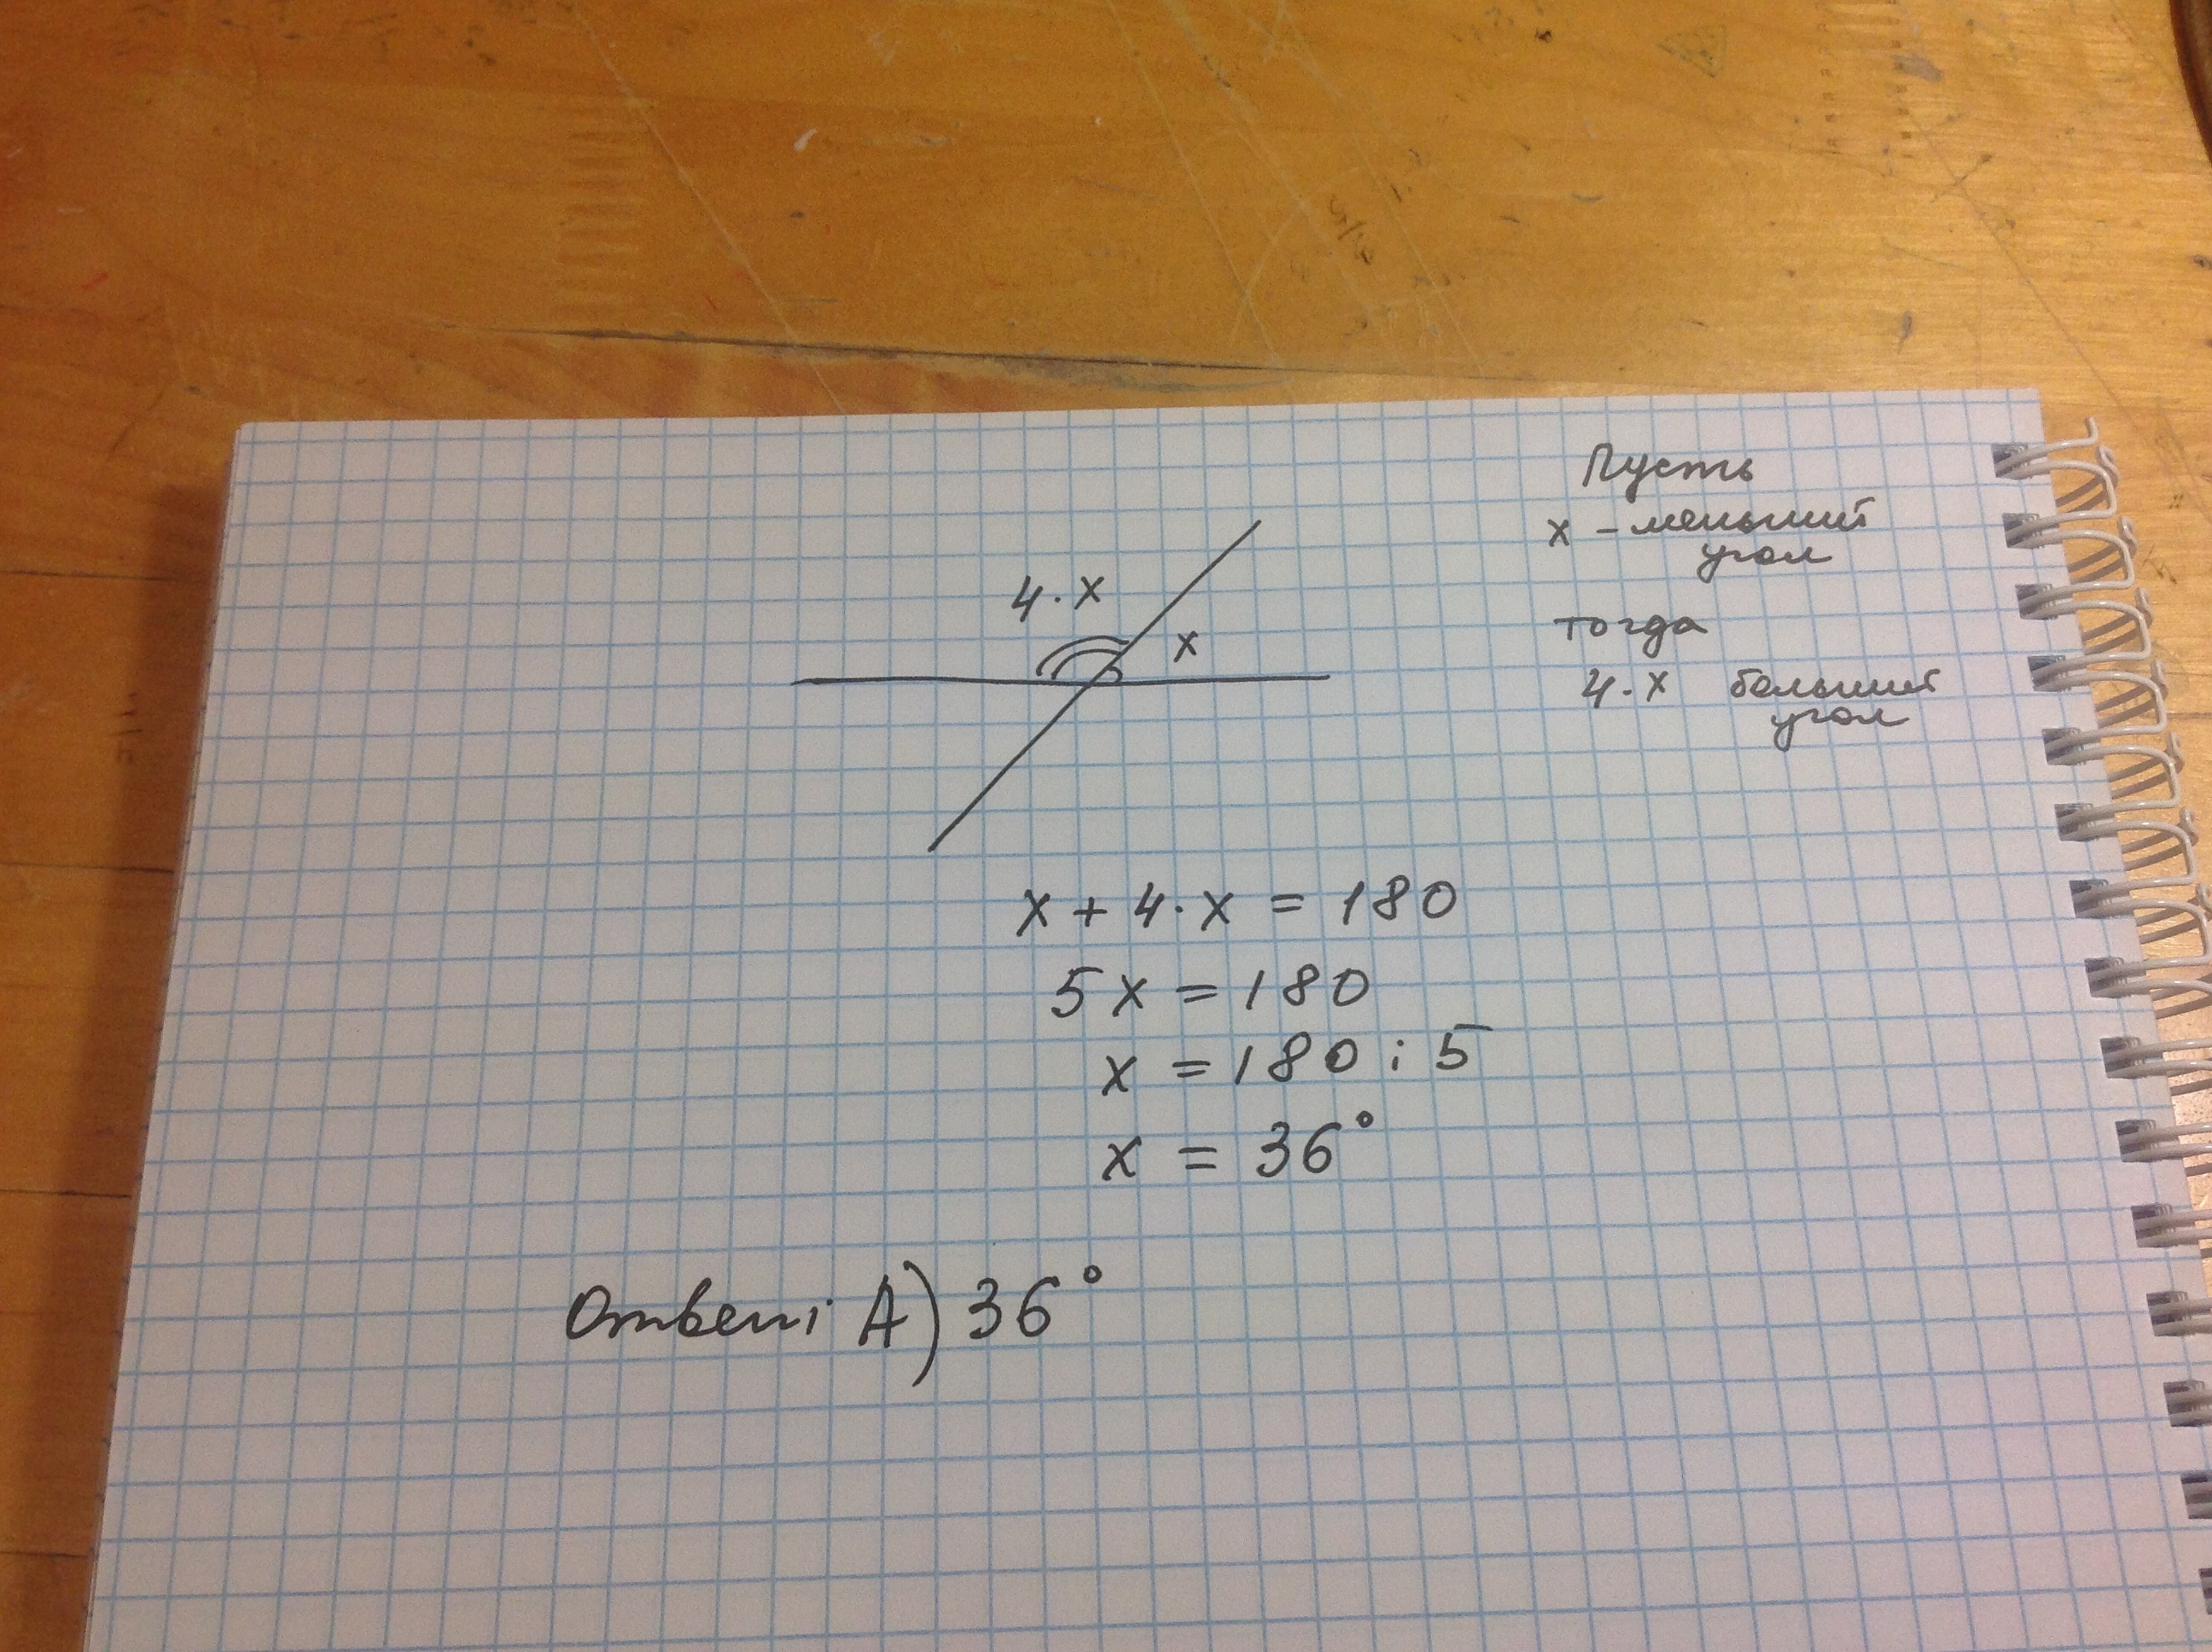 Пусть
x - меньший
угол
тогда
4·x больший
угол
4·x
x
x + 4·x = 180
5x = 180
x = 180 : 5
x = 36°
Ответ: А) 36°